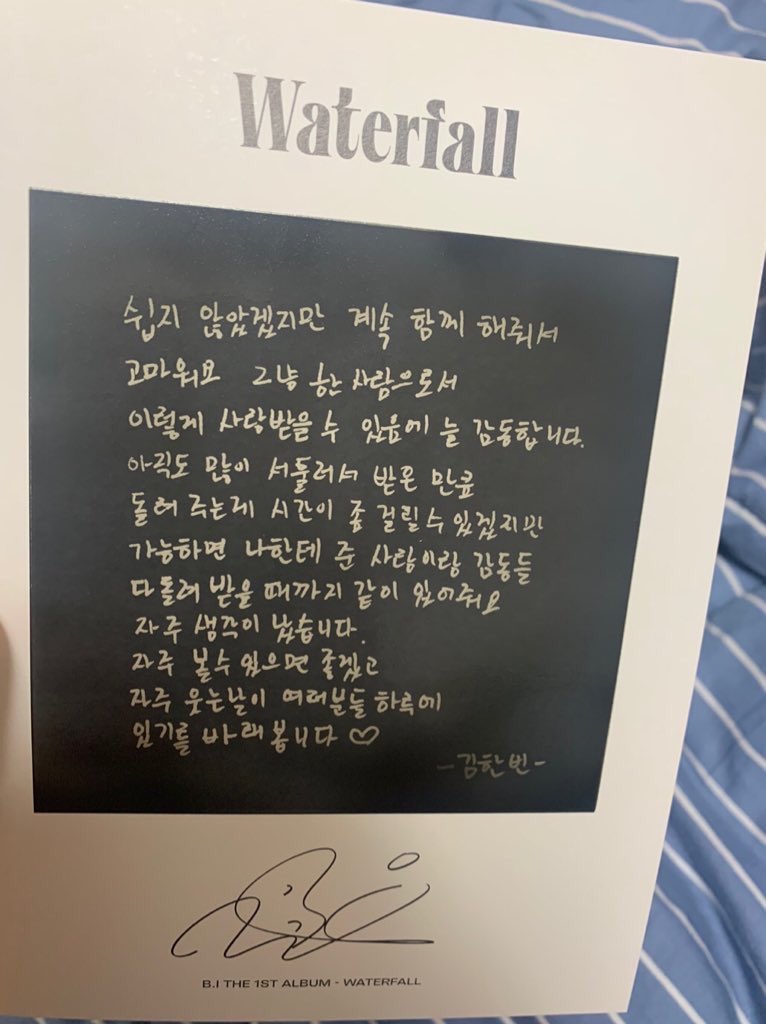 Waterfall
쉽지 않았겠지만 계속 함께 해줘서
고마워요 그냥 한 사람으로서
이렇게 사랑받을 수 있음에 늘 감동합니다.
아직도 많이 서툴러서 받은 만큼
돌려 주는데 시간이 좀 걸릴 수 있겠지만
가능하면 나한테 준 사랑이랑 감동들
다 돌려 받을 때까지 같이 있어줘요
자주 생각이 났습니다.
자주 볼 수 있으면 좋겠고
자주 웃는 날이 여러분들 하루에
있기를 바래봅니다 ♡
-김한빈-
B.I THE 1ST ALBUM - WATERFALL